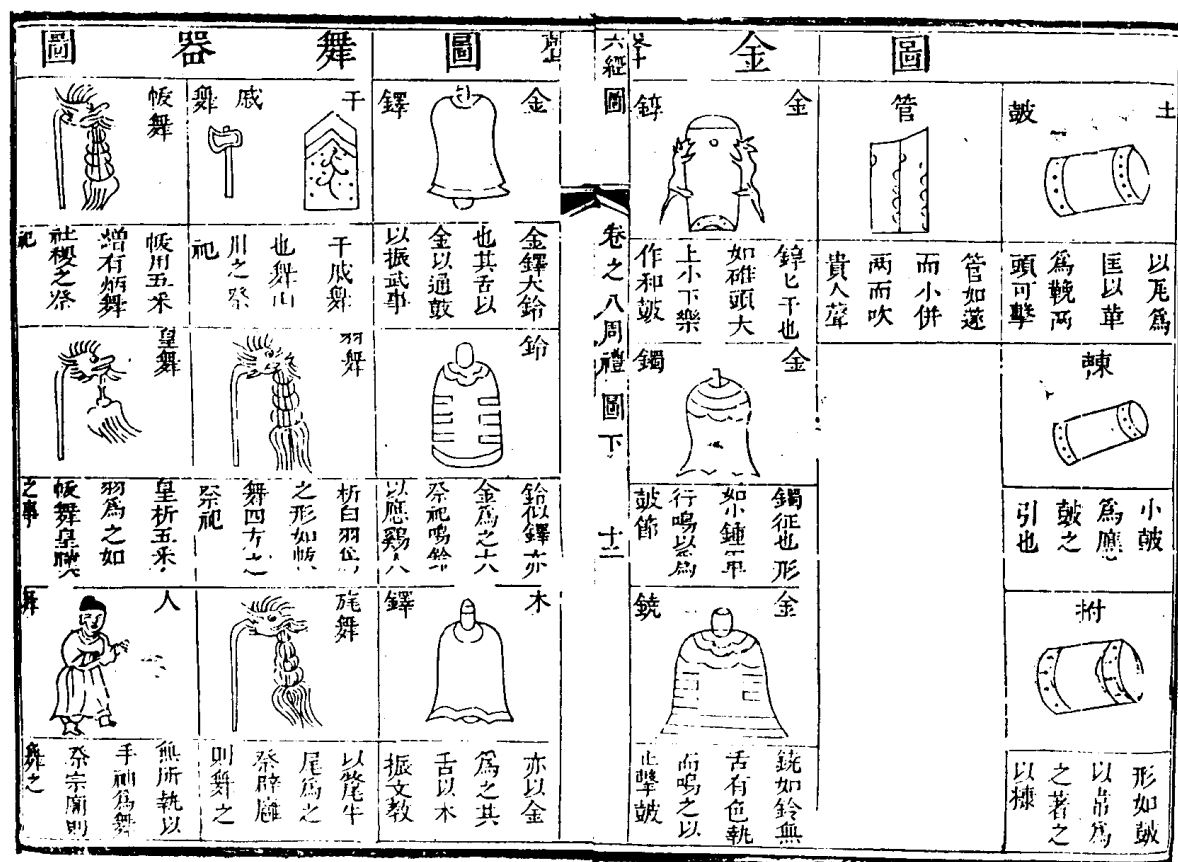 圖
土鼓
以瓦為
匡以革
為鞔兩
頭可擊
朄
小鼓
為應
鼓之
引也
拊
形如鼓
以韋為
之著之
以糠
管
管如篴
而小併
兩而吹
貴人聲
金
金錞
錞于也
如碓頭大
上小下樂
作和鼓
金鐲
鐲征也形
如小鍾軍
行鳴以為
鼓節
金鐃
鐃如鈴無
舌有色執
而鳴之以
止擊鼓
六經圖
卷之八周禮圖下
十二
圖
金鐸
金鐸大鈴
也其舌以
金以通鼓
以振武事
鈴
鈴似鐸亦
金為之大
祭祀鳴鈴
以應鷄人
木鐸
亦以金
為之其
舌以木
振文教
舞器圖
干戚舞
干戚舞
也舞山
川之祭
祀
羽舞
析白羽為
之形如帗
舞四方之
祭祀
旄舞
以氂尾牛
尾為之
祭辟廱
則舞之
帗舞
帗用五采
繒有炳舞
社稷之祭
祀
皇舞
皇析五采
羽為之如
帗舞皇
之事
人舞
無所執以
手袖為舞
祭宗廟則
舞之